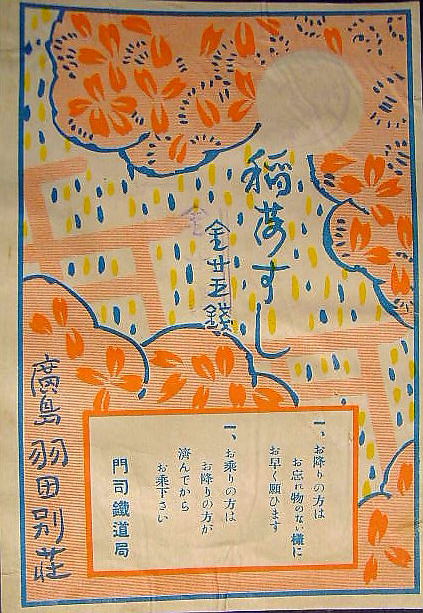 稲荷すし
金廿五錢
金
一、お降りの方は
お忘れ物のない樣に
お早く願ひます
一、お乘りの方は
お降りの方が
濟んでから
お乘下さい
門司鐵道局
廣島 羽田別莊